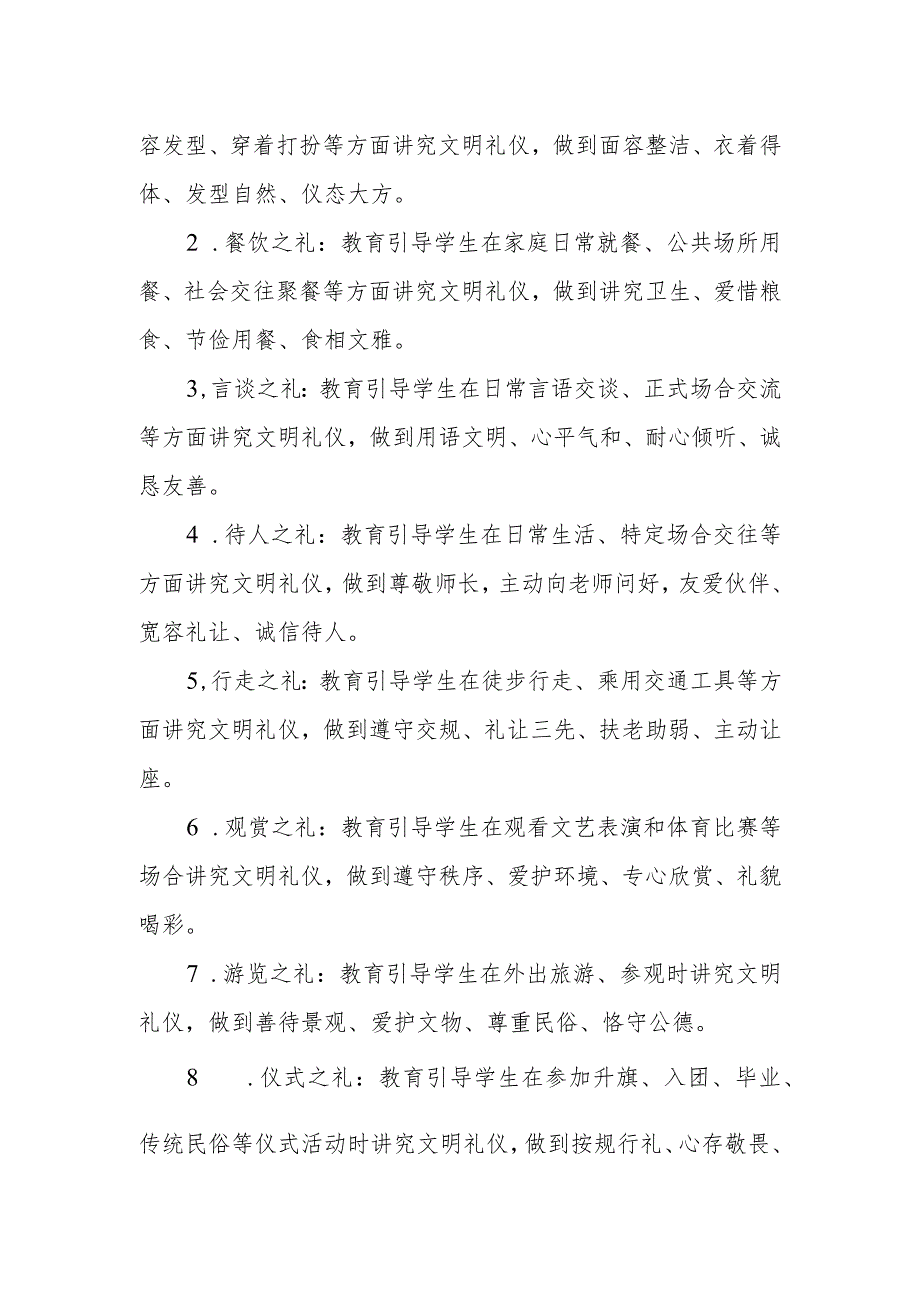 容发型、穿着打扮等方面讲究文明礼仪，做到面容整洁、衣着得
体、发型自然、仪态大方。
2 .餐饮之礼：教育引导学生在家庭日常就餐、公共场所用
餐、社会交往聚餐等方面讲究文明礼仪，做到讲究卫生、爱惜粮
食、节俭用餐、食相文雅。
3,言谈之礼：教育引导学生在日常言语交谈、正式场合交流
等方面讲究文明礼仪，做到用语文明、心平气和、耐心倾听、诚
恳友善。
4 .待人之礼：教育引导学生在日常生活、特定场合交往等
方面讲究文明礼仪，做到尊敬师长，主动向老师问好，友爱伙伴、
宽容礼让、诚信待人。
5,行走之礼：教育引导学生在徒步行走、乘用交通工具等方
面讲究文明礼仪，做到遵守交规、礼让三先、扶老助弱、主动让
座。
6 .观赏之礼：教育引导学生在观看文艺表演和体育比赛等
场合讲究文明礼仪，做到遵守秩序、爱护环境、专心欣赏、礼貌
喝彩。
7 .游览之礼：教育引导学生在外出旅游、参观时讲究文明
礼仪，做到善待景观、爱护文物、尊重民俗、恪守公德。
8 .仪式之礼：教育引导学生在参加升旗、入团、毕业、
传统民俗等仪式活动时讲究文明礼仪，做到按规行礼、心存敬畏、